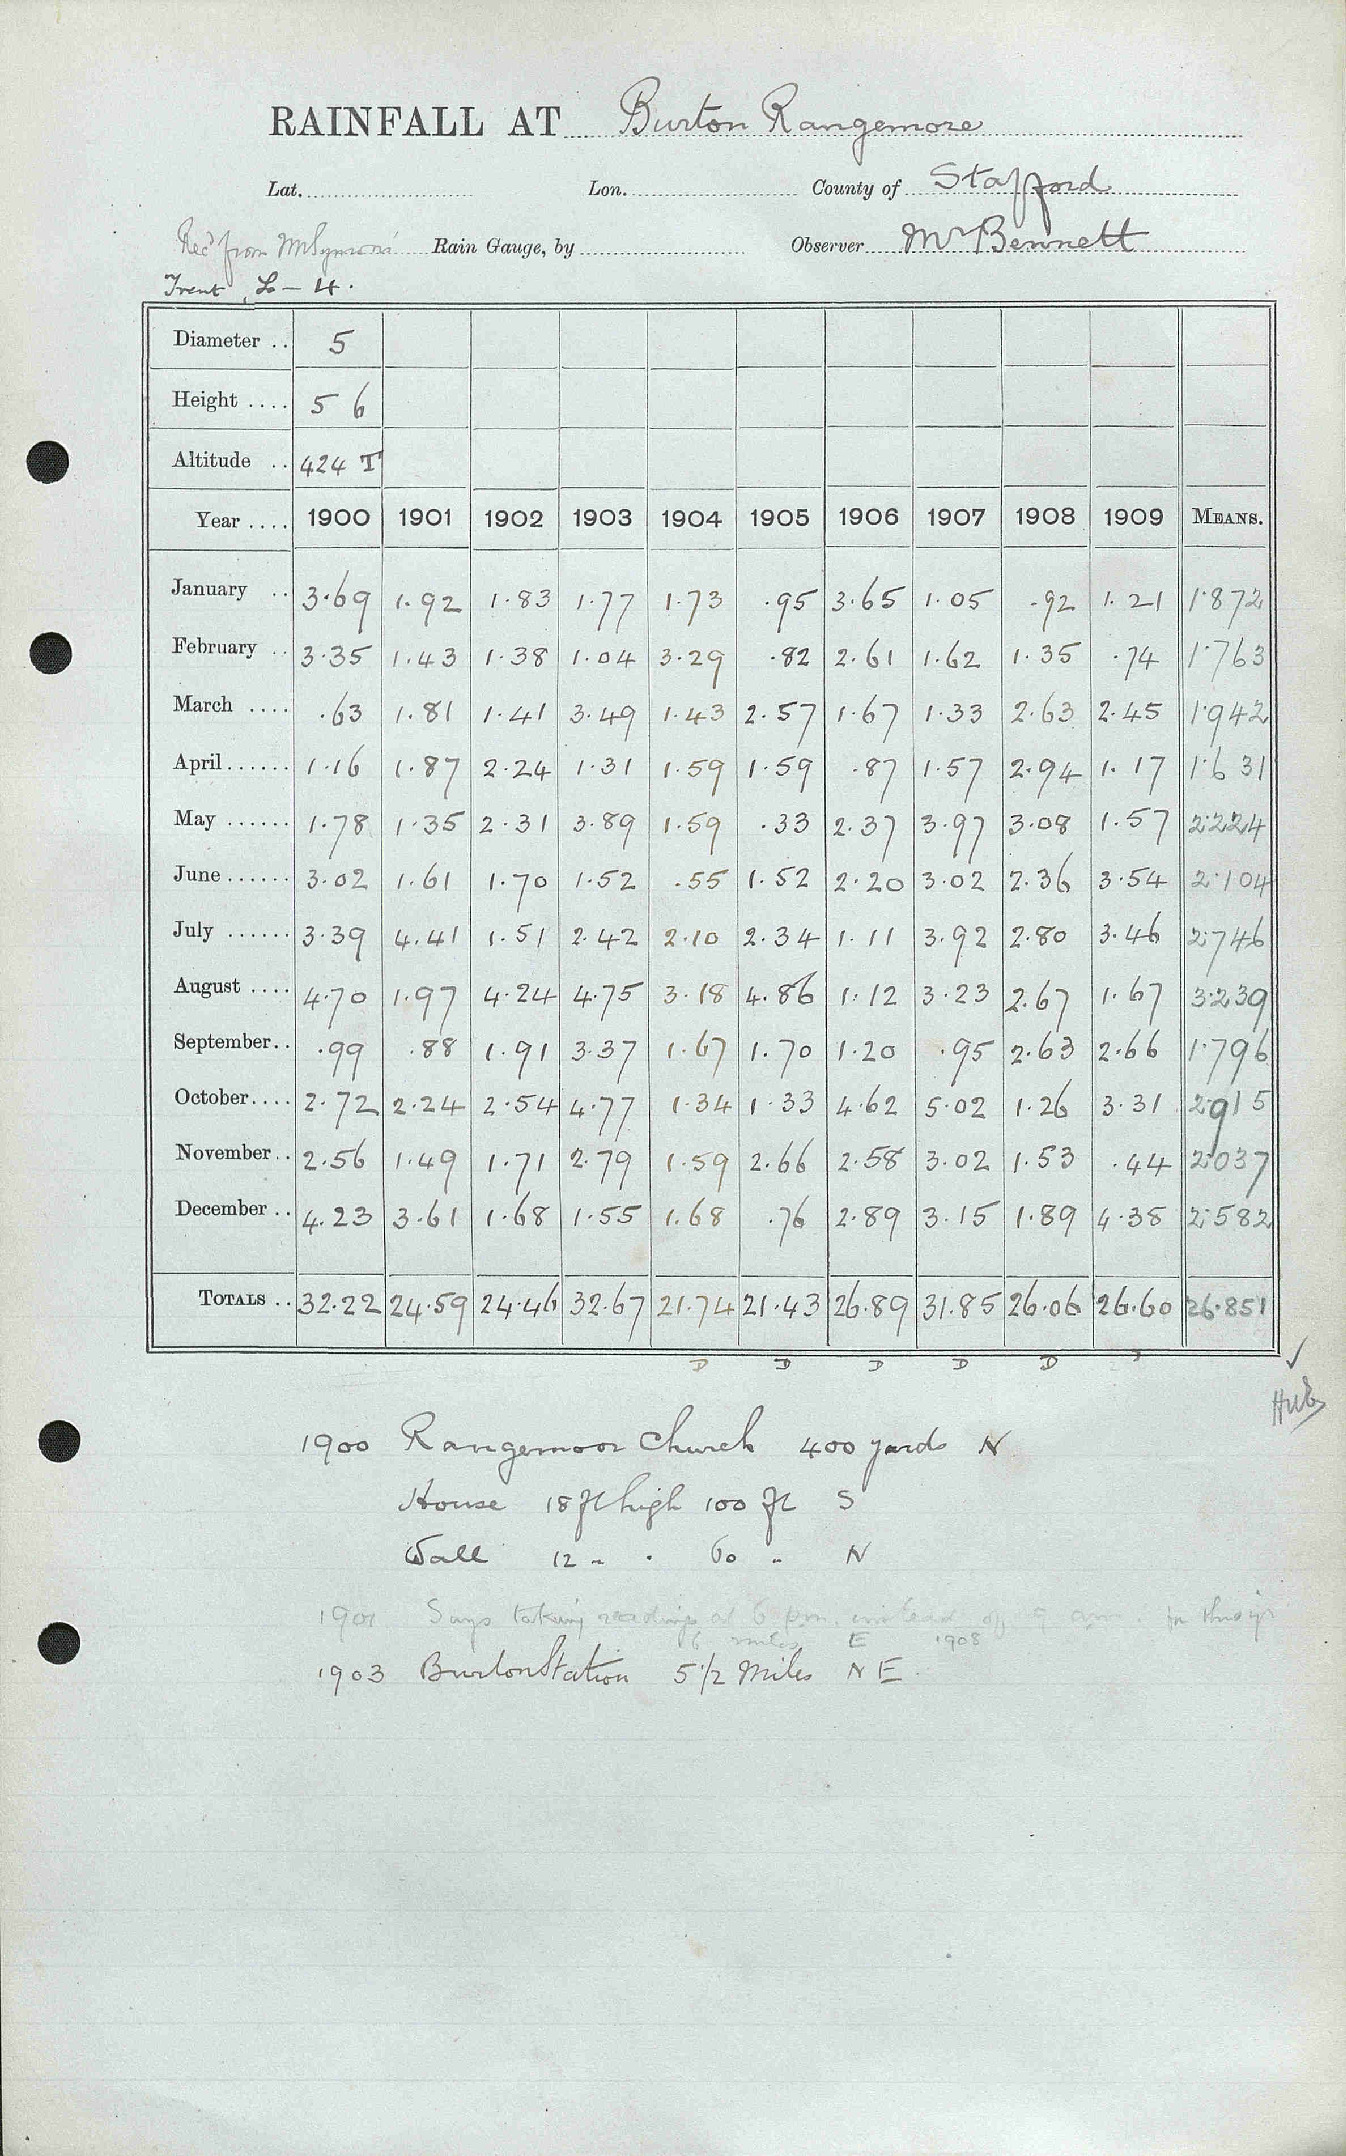 RAINFALL AT Burton Rangemore
Lat. Lon. County of Stafford
Recd from Mr Symons' Rain Gauge, by Observer Mr Bennett
Trent L - 4.
Diameter .. 5
Height .... 5 6
Altitude .. 424 T
Year .... 1900 1901 1902 1903 1904 1905 1906 1907 1908 1909 MEANS.
January .. 3.69 1.92 1.83 1.77 1.73 .95 3.65 1.05 .92 1.21 1.872
February .. 3.35 1.43 1.38 1.04 3.29 .82 2.61 1.62 1.35 .74 1.763
March .... .63 1.81 1.41 3.49 1.43 2.57 1.67 1.33 2.63 2.45 1.942
April...... 1.16 1.87 2.24 1.31 1.59 1.59 .87 1.57 2.94 1.17 1.631
May ...... 1.78 1.35 2.31 3.89 1.59 .33 2.37 3.97 3.08 1.57 2.224
June...... 3.02 1.61 1.70 1.52 .55 1.52 2.20 3.02 2.36 3.54 2.104
July ...... 3.39 4.41 1.51 2.42 2.10 2.34 1.11 3.92 2.80 3.46 2.746
August .... 4.70 1.97 4.24 4.75 3.18 4.86 1.12 3.23 2.67 1.67 3.239
September.. .99 .88 1.91 3.37 1.67 1.70 1.20 .95 2.63 2.66 1.796
October.... 2.72 2.24 2.54 4.77 1.34 1.33 4.62 5.02 1.26 3.31 2.915
November.. 2.56 1.49 1.71 2.79 1.59 2.66 2.58 3.02 1.53 .44 2.037
December .. 4.23 3.61 1.68 1.55 1.68 .76 2.89 3.15 1.89 4.38 2.582
TOTALS .. 32.22 24.59 24.46 32.67 21.74 21.43 26.89 31.85 26.06 26.60 26.851
D D D D D
1900 Rangemoor Church 400 yards N
House 18 ft high 100 ft S
Wall 12 " . 60 " N
1901 Says taking readings at 6 pm. instead of 9 am. in this yr
6 miles E 1908
1903 Burton Station 5 1/2 Miles N E.